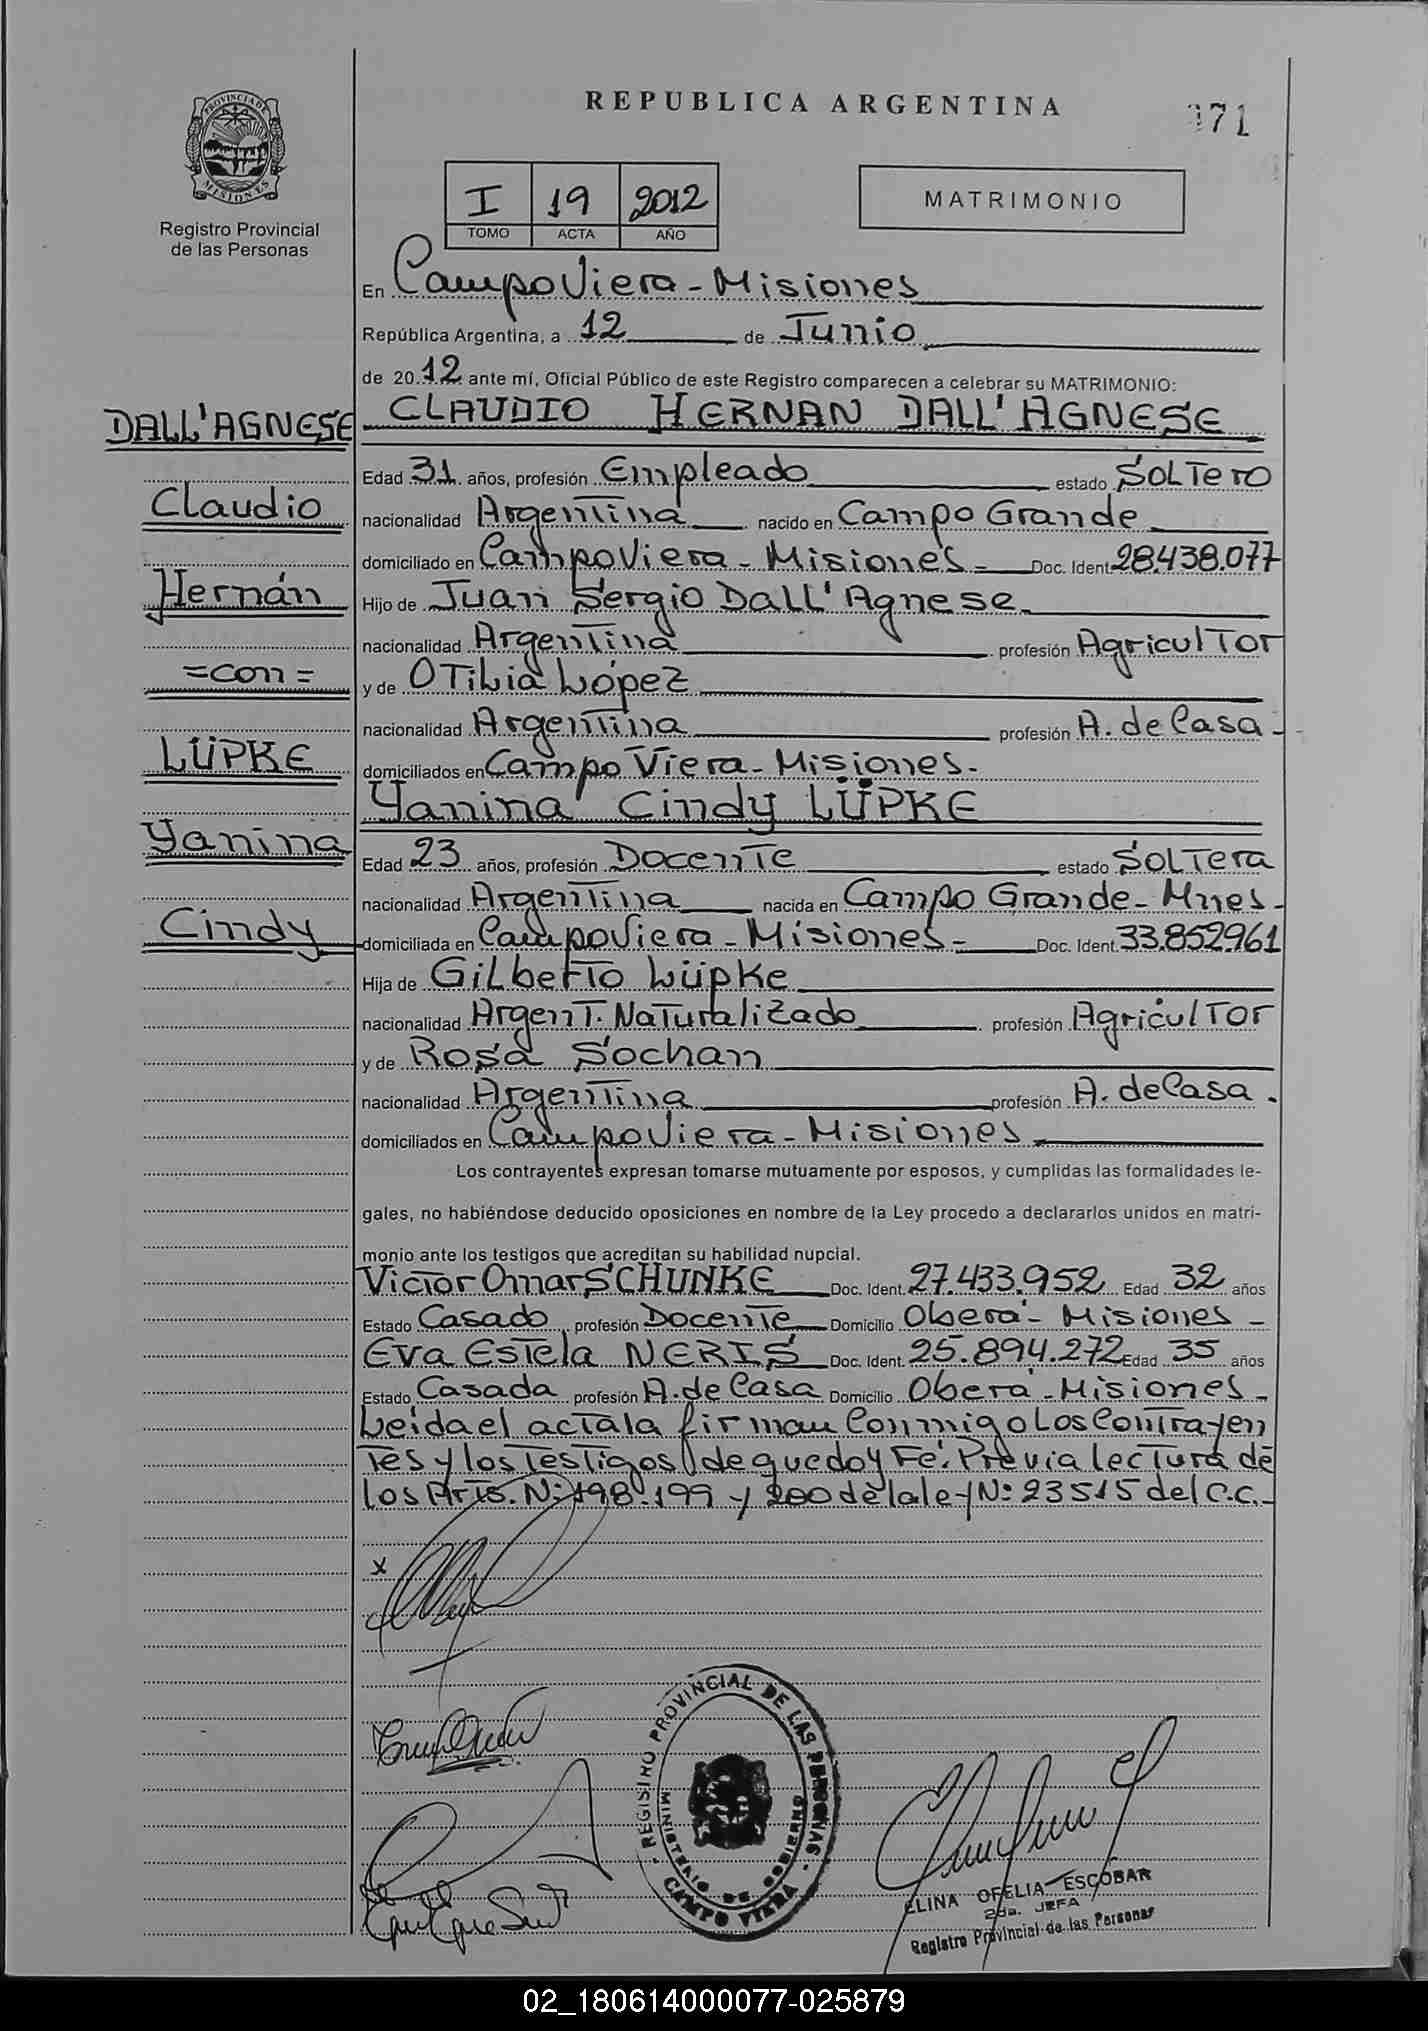 REPUBLICA ARGENTINA
371
PROVINCIA DE MISIONES
Registro Provincial
de las Personas
I 19 2012
TOMO ACTA AÑO
MATRIMONIO
En Campo Viera - Misiones
República Argentina, a 12 de Junio
de 20 12 ante mí, Oficial Público de este Registro comparecen a celebrar su MATRIMONIO:
DALL'AGNESE
Claudio
Hernán
= con =
LÜPKE
Yanina
Cindy
CLAUDIO HERNAN DALL'AGNESE
Edad 31 años, profesión Empleado estado SOLTERO
nacionalidad Argentina nacido en Campo Grande
domiciliado en Campo Viera - Misiones - Doc. Ident. 28.438.077
Hijo de Juan Sergio Dall'Agnese
nacionalidad Argentina profesión Agricultor
y de Otilia López
nacionalidad Argentina profesión A. de Casa -
domiciliados en Campo Viera - Misiones -
Yanina Cindy LÜPKE
Edad 23 años, profesión Docente estado SOLTERA
nacionalidad Argentina nacida en Campo Grande - Mnes -
domiciliada en Campo Viera - Misiones - Doc. Ident. 33.852.961
Hija de Gilberto Lüpke
nacionalidad Argent. Naturalizado profesión Agricultor
y de Rosa Sochan
nacionalidad Argentina profesión A. de Casa .
domiciliados en Campo Viera - Misiones
Los contrayentes expresan tomarse mutuamente por esposos, y cumplidas las formalidades le-
gales, no habiéndose deducido oposiciones en nombre de la Ley procedo a declararlos unidos en matri-
monio ante los testigos que acreditan su habilidad nupcial.
Victor Omar SCHUNKE Doc. Ident. 27.433.952 Edad 32 años
Estado Casado profesión Docente Domicilio Oberá - Misiones -
Eva Estela NERIS Doc. Ident. 25.894.272 Edad 35 años
Estado Casada profesión A. de Casa Domicilio Oberá - Misiones -
Leida el acta la firman conmigo los contrayen
tes y los testigos de que doy Fé. Previa lectura de
los Arts. Nº 198. 199 y 200 de la ley Nº 23515 del C.C.-
x
REGISTRO PROVINCIAL DE LAS PERSONAS
MINISTERIO DE GOBIERNO
CAMPO VIERA
ELINA OFELIA ESCOBAR
2da. JEFA
Registro Provincial de las Personas
02_180614000077-025879